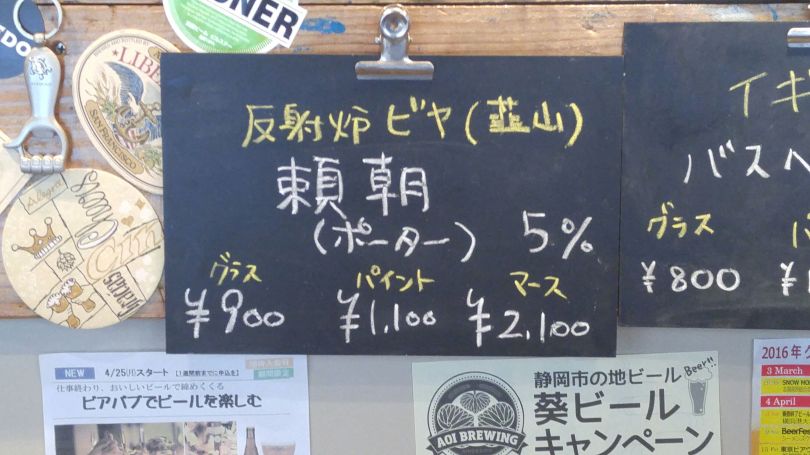 反射炉ビヤ(韮山)
頼朝
(ポーター) 5%
グラス パイント マース
¥900 ¥1,100 ¥2,100
イギ
バスペ
グラス
¥800
NEW 4/25(月)スタート
仕事終わり、おいしいビールで締めくくる
ビアパブでビールを楽しむ
静岡市の地ビール Beer!!
葵ビール
キャンペーン
AOI BREWING
2016年
3 March
SNOW MO
4 April
BeerFes
SAN FRANCISCO
LIBE
NER